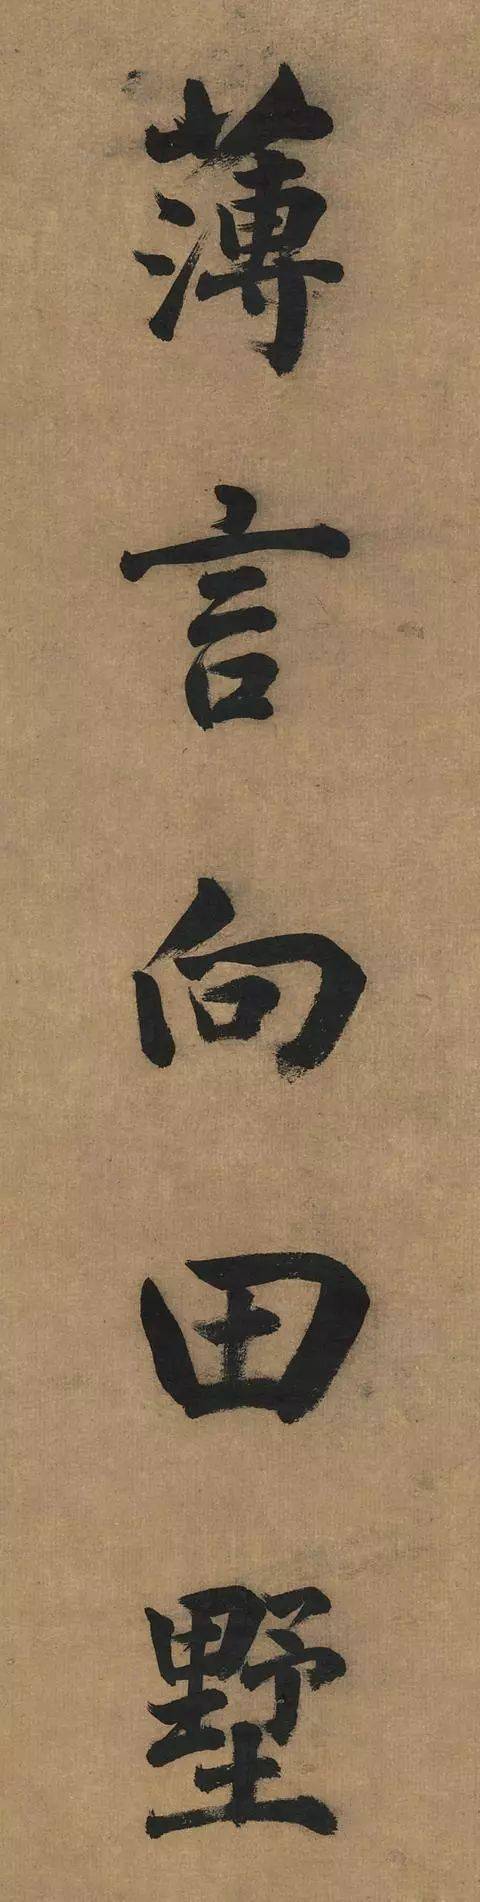 薄言向田墅